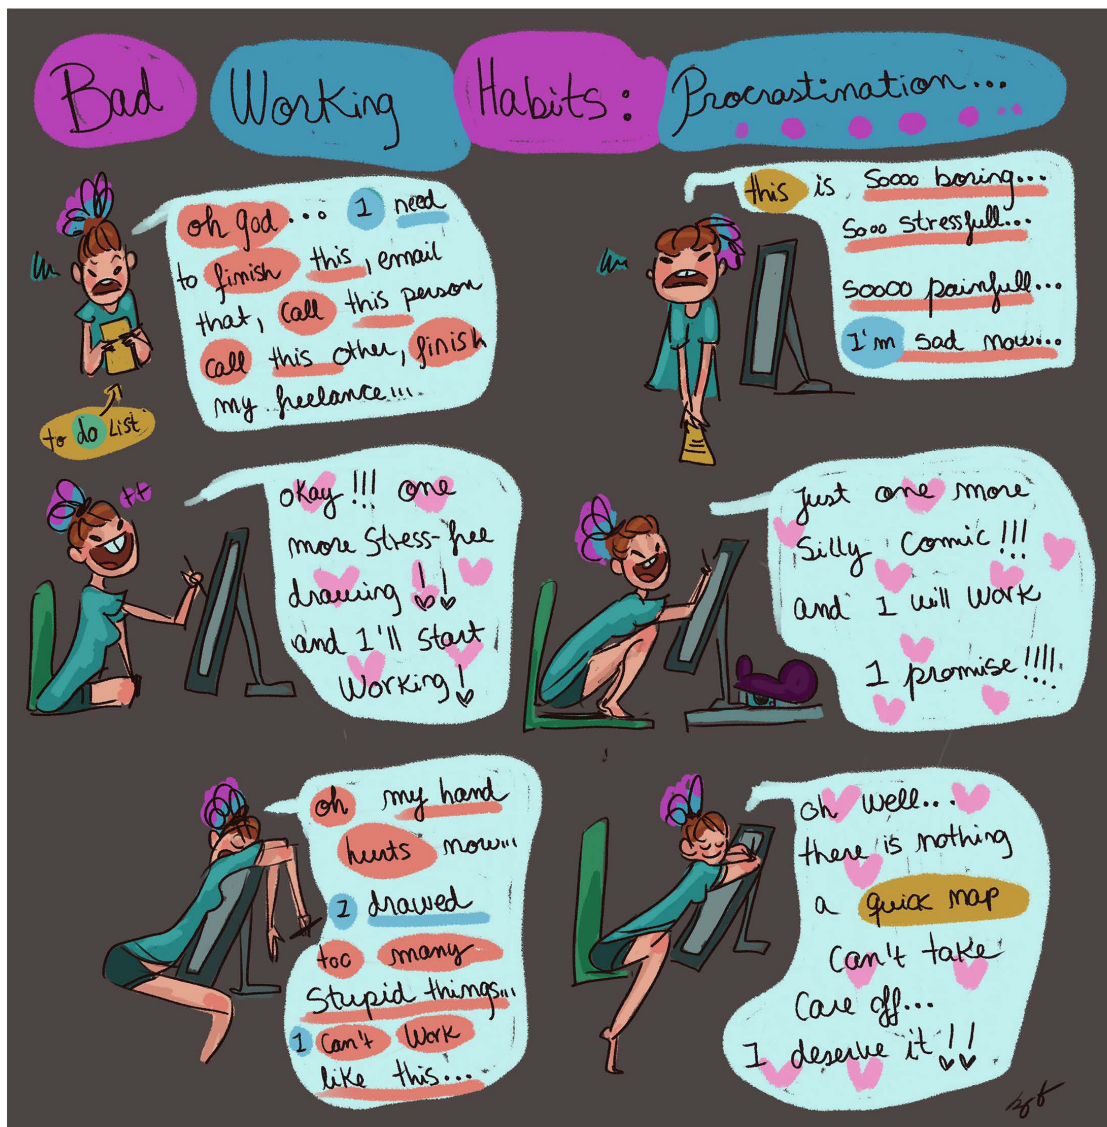 Bad Working Habits: Procrastination...
oh god... I need
to finish this, email
that, call this person
call this other, finish
my freelance...
to do list
this is soooo boring...
sooo stressfull...
soooo painfull...
I'm sad now...
okay!!! one
more stress-free
drawing!!
and I'll start
working!
Just one more
silly comic!!!
and I will work
I promise!!!!
oh my hand
hurts now...
I drawed
too many
stupid things...
I can't work
like this...
oh well...
there is nothing
a quick map
can't take
care off...
I deserve it!!